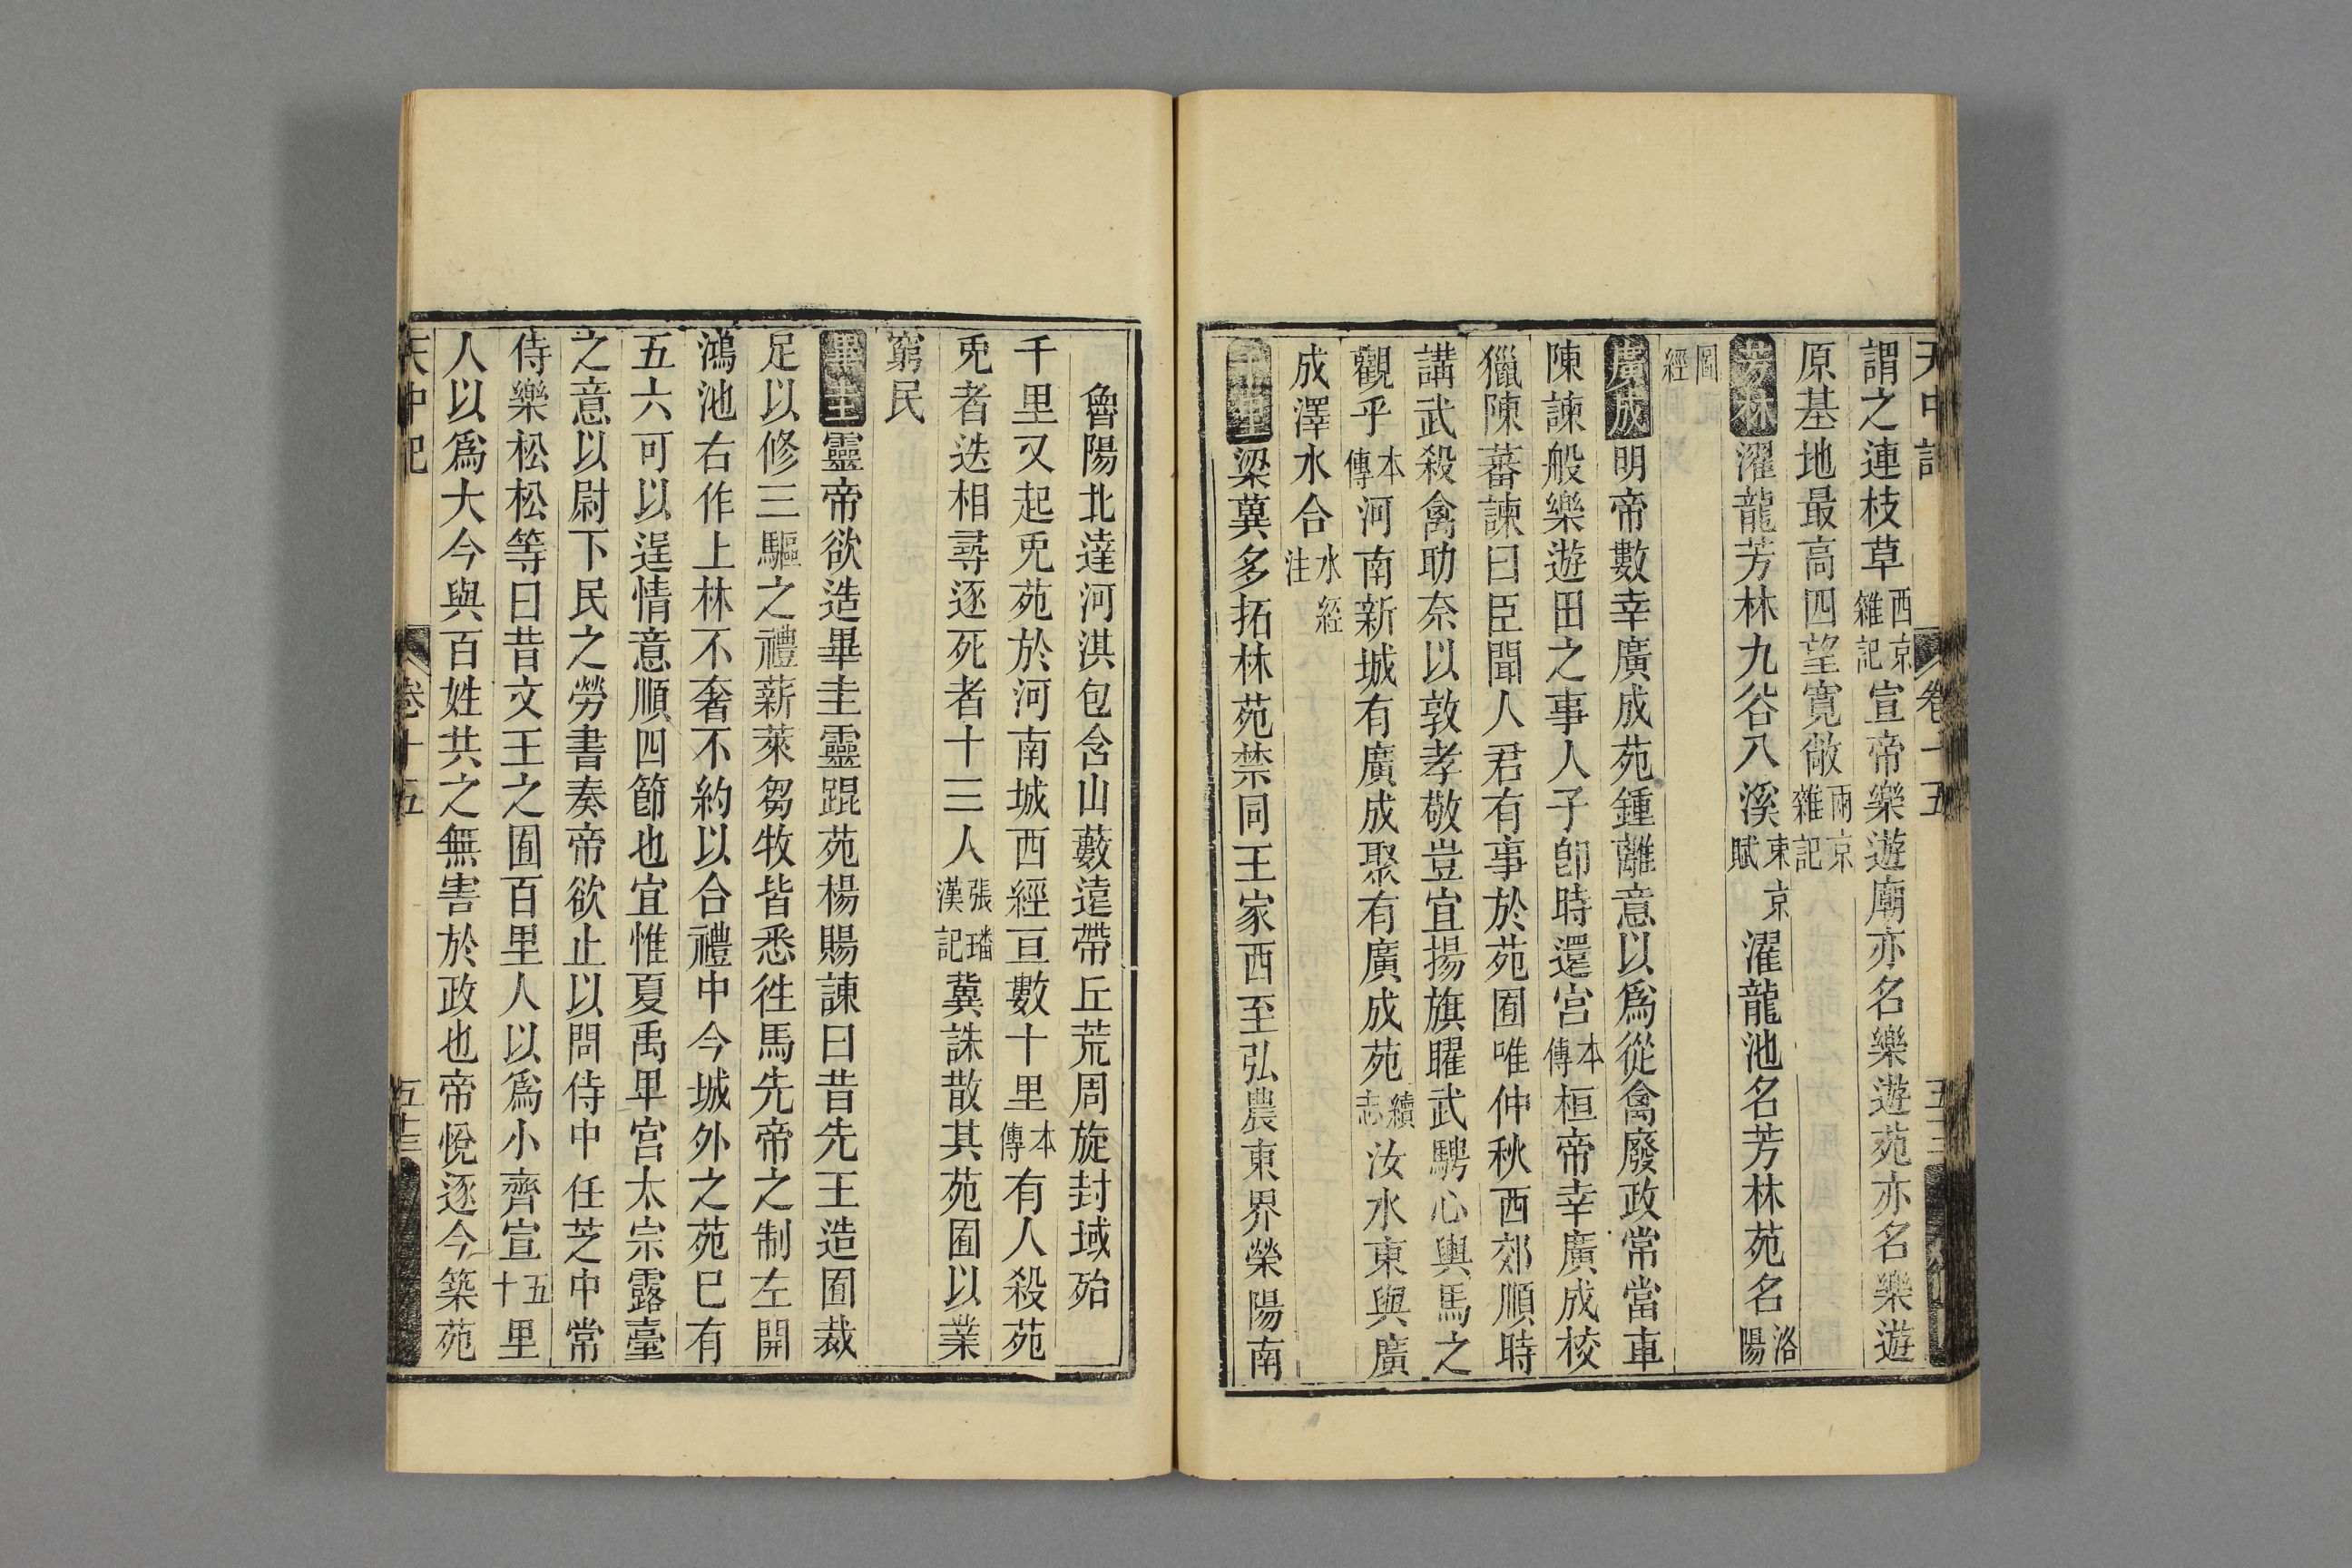 天中記 卷十五 五十三
謂之連枝草西京雜記宣帝樂遊廟亦名樂遊苑亦名樂遊
原基地最高四望寬敞兩京雜記
芳林濯龍芳林九谷八溪東京賦濯龍池名芳林苑名洛陽
圖經
廣成明帝數幸廣成苑鍾離意以爲從禽廢政常當車
陳諫般樂遊田之事人子卽時還宮本傳桓帝幸廣成校
獵陳蕃諫曰臣聞人君有事於苑囿唯仲秋西郊順時
講武殺禽助奈以敦孝敬豈宜揚旗曜武騁心輿馬之
觀乎本傳河南新城有廣成聚有廣成苑續志汝水東與廣
成澤水合水經注
千里梁冀多拓林苑禁同王家西至弘農東界滎陽南
魯陽北達河淇包含山藪遠帶丘荒周旋封域殆
千里又起兎苑於河南城西經亘數十里本傳有人殺苑
兎者迭相尋逐死者十三人張璠漢記冀誅散其苑囿以業
窮民
畢圭靈帝欲造畢圭靈琨苑楊賜諫曰昔先王造囿裁
足以修三驅之禮薪萊芻牧皆悉徃馬先帝之制左開
鴻池右作上林不奢不約以合禮中今城外之苑巳有
五六可以逞情意順四節也宜惟夏禹卑宮太宗露臺
之意以尉下民之勞書奏帝欲止以問侍中任芝中常
侍樂松松等曰昔文王之囿百里人以爲小齊宣五十里
人以爲大今與百姓共之無害於政也帝悅逐今築苑
天中記 卷十五 五十三